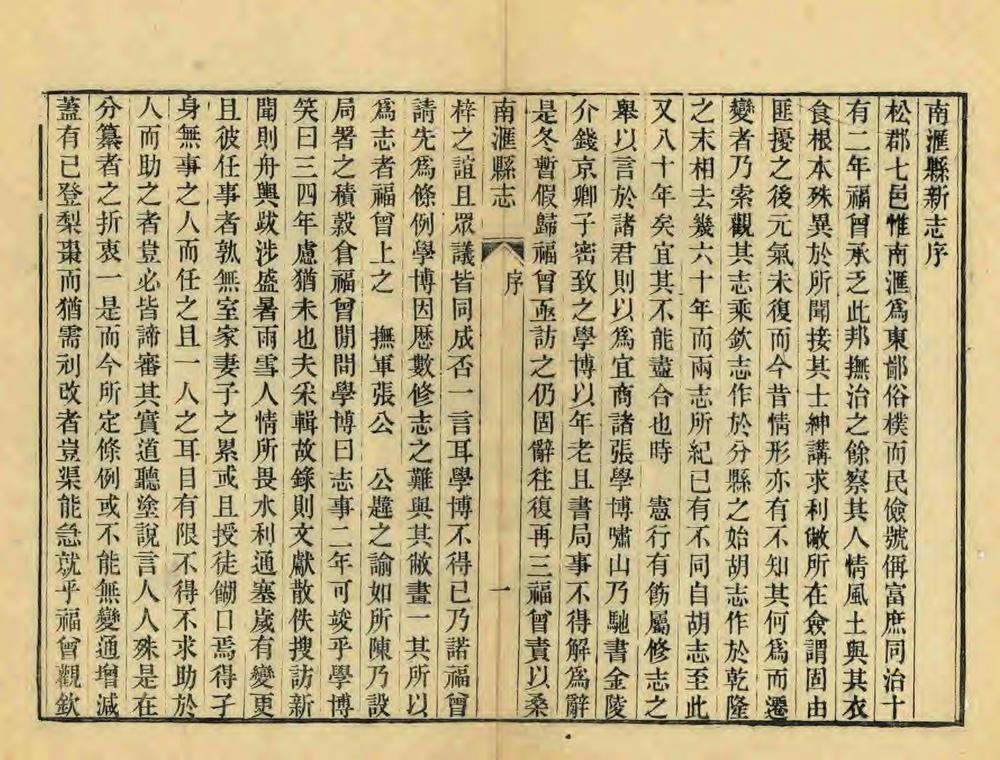 南滙縣新志序
松郡七邑惟南滙爲東鄙俗樸而民儉號偁富庶同治十
有二年福曾承乏此邦撫治之餘察其人情風土與其衣
食根本殊異於所聞接其士紳講求利敝所在僉謂固由
匪擾之後元氣未復而今昔情形亦有不知其何爲而遷
變者乃索觀其志乘欽志作於分縣之始胡志作於乾隆
之末相去幾六十年而兩志所紀已有不同自胡志至此
又八十年矣宜其不能盡合也時 憲行有飭屬修志之
舉以言於諸君則以爲宜商諸張學博嘯山乃馳書金陵
介錢京卿子密致之學博以年老且書局事不得解爲辭
是冬暫假歸福曾亟訪之仍固辭往復再三福曾責以桑
南滙縣志 序 一
梓之誼且眾議皆同成否一言耳學博不得已乃諾福曾
請先爲條例學博因歴數修志之難與其敝畫一其所以
爲志者福曾上之 撫軍張公 公韙之諭如所陳乃設
局署之積穀倉福曾閒問學博曰志事二年可竣乎學博
笑曰三四年慮猶未也夫采輯故錄則文獻散佚搜訪新
聞則舟輿跋涉盛暑雨雪人情所畏水利通塞歲有變更
且彼任事者孰無室家妻子之累或且授徒餬口焉得子
身無事之人而任之且一人之耳目有限不得不求助於
人而助之者豈必皆諦審其實道聽塗說言人人殊是在
分纂者之折衷一是而今所定條例或不能無變通增減
蓋有已登梨棗而猶需刓改者豈渠能急就乎福曾觀欽